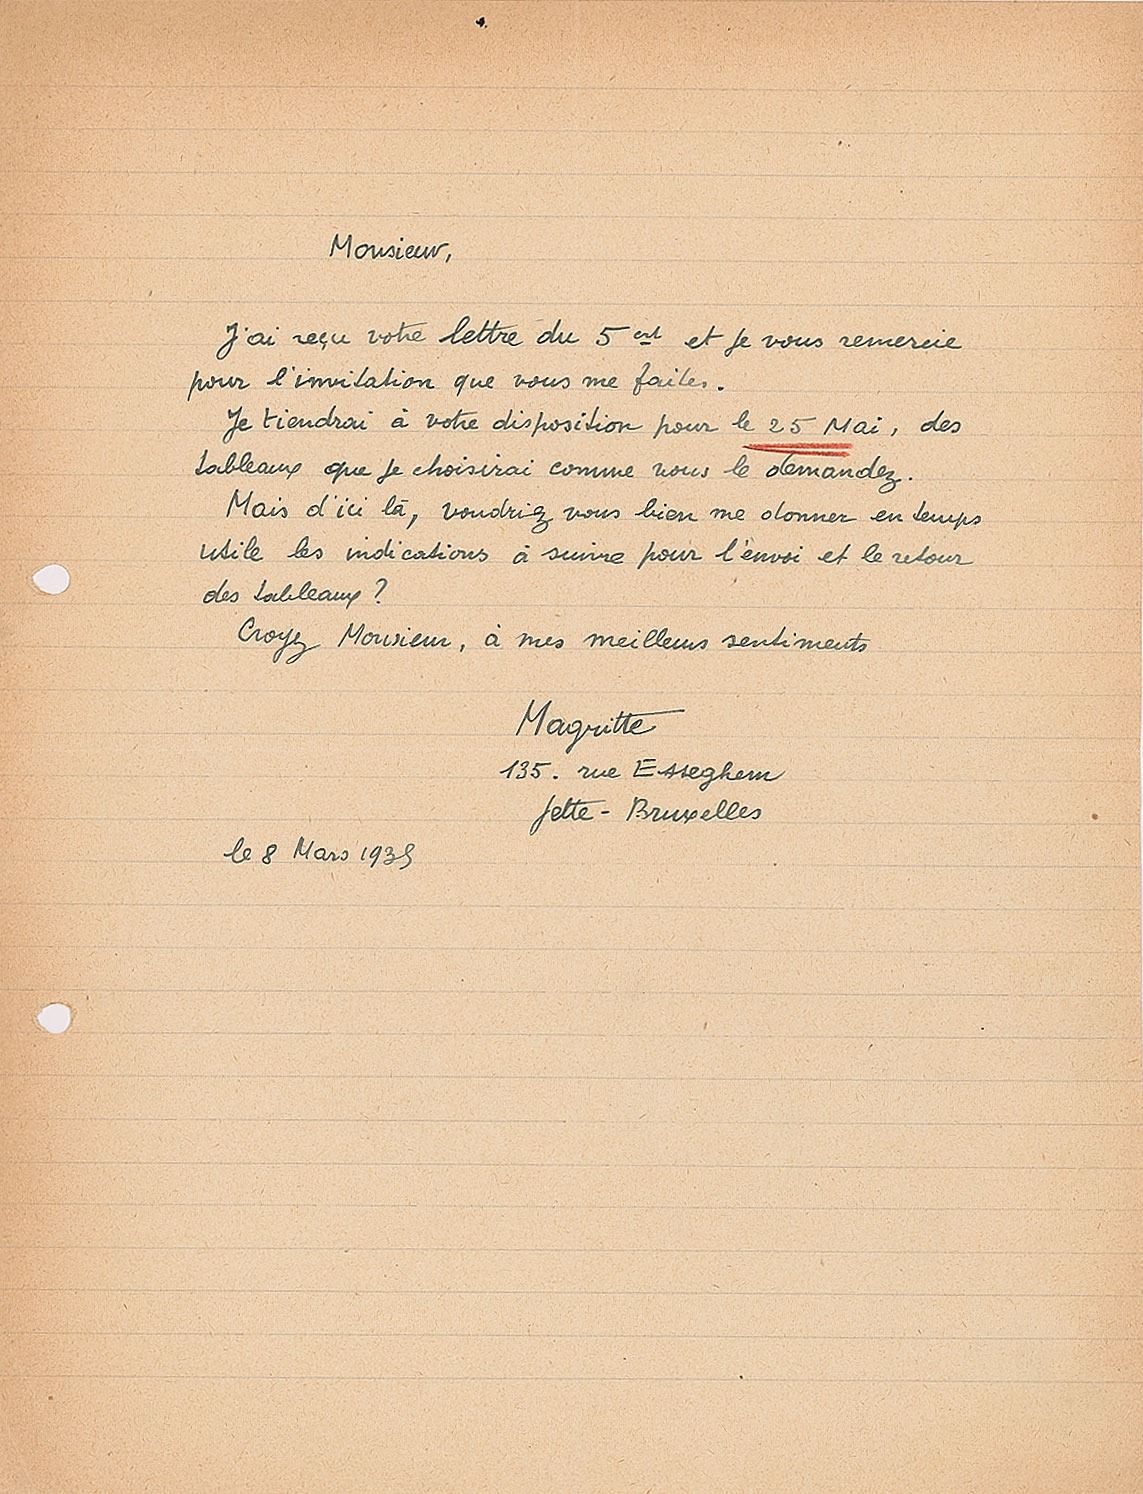 Monsieur,
J'ai reçu votre lettre du 5 crt et je vous remercie
pour l'invitation que vous me faites.
Je tiendrai à votre disposition pour le 25 Mai, des
tableaux que je choisirai comme vous le demandez.
Mais d'ici là, voudriez vous bien me donner en temps
utile les indications à suivre pour l'envoi et le retour
des tableaux ?
Croyez Monsieur, à mes meilleurs sentiments
Magritte
135. rue Esseghem
Jette - Bruxelles
le 8 Mars 1935